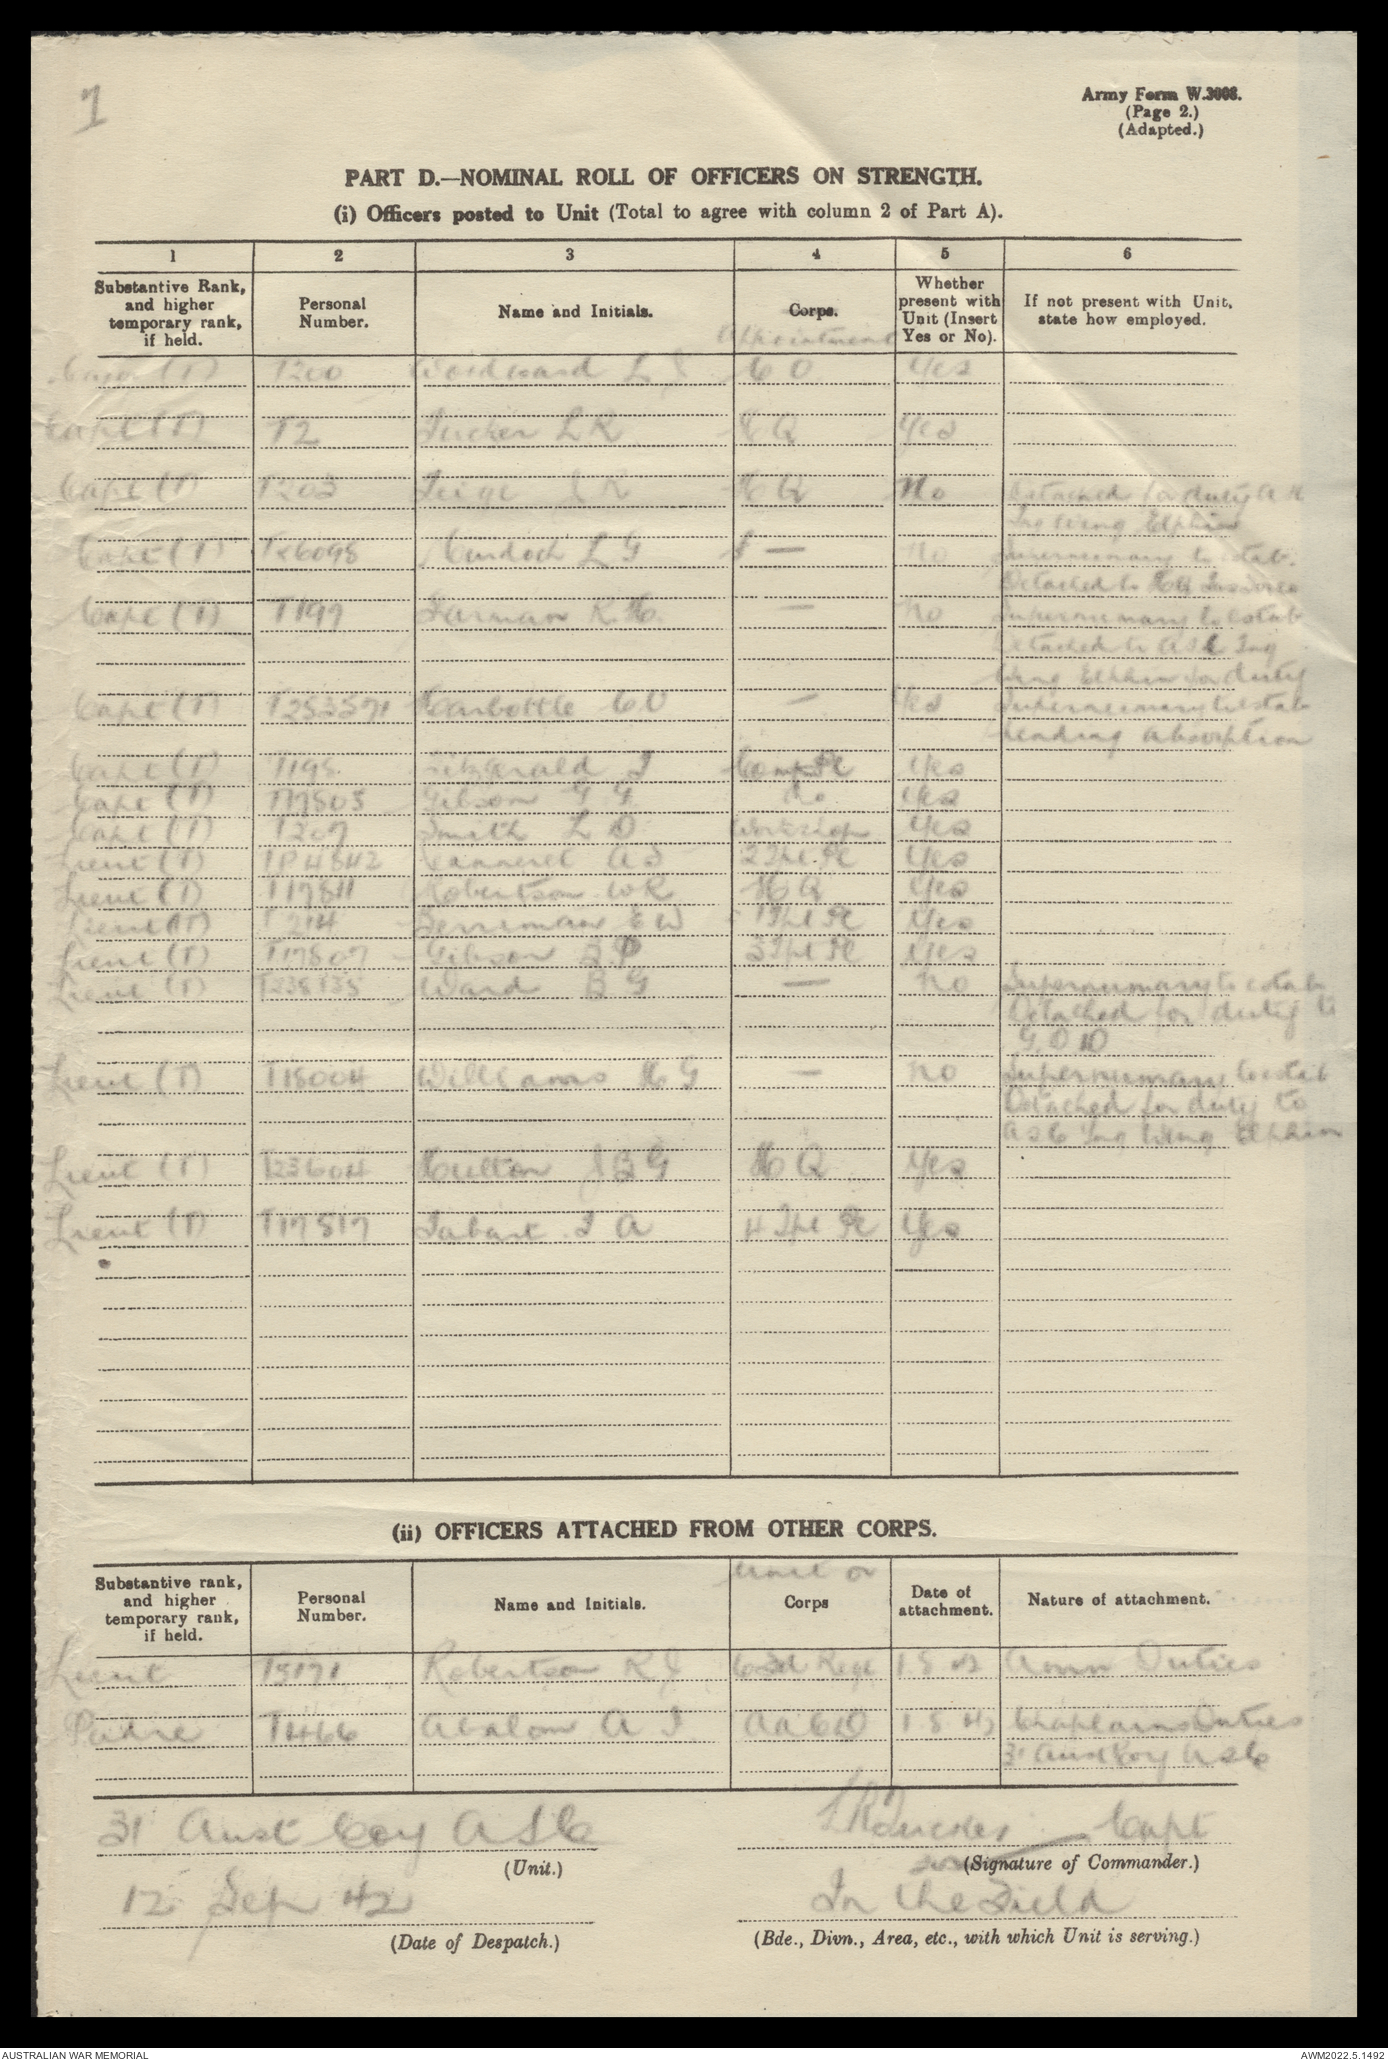 7
Army Form W.3008.
(Page 2.)
(Adapted.)
PART D.—NOMINAL ROLL OF OFFICERS ON STRENGTH.
(i) Officers posted to Unit (Total to agree with column 2 of Part A).
1 2 3 4 5 6
Substantive Rank, and higher temporary rank, if held. Personal Number. Name and Initials. Corps. Appointment Whether present with Unit (Insert Yes or No). If not present with Unit, state how employed.
(T) T200 Woodward L J C O Yes
Capt (T) T2 Tucker L R H Q Yes
Capt (T) T203 J R H Q No Detached for duty A H
Trg Wing Elphin
Capt (T) T26098 Murdoch L G — No Supernumary to estab.
Detached to
Capt (T) T199 Jarman R. H. — No Supernumary to estab
Detached to ASC Trg
Wing Elphin for duty
Capt (T) Harbottle C O — Yes Supernumary to estab
Pending absorption
Capt (T) T198 Fitzgerald J Comp Pl Yes
Capt (T) T17803 Gibson G G Yes
Capt (T) T207 Smith L D Workshop Yes
Lieut (T) A S 2 Tpt. Pl Yes
Lieut (T) T17811 Robertson W R H Q Yes
Lieut (T) T 214 Berriman E W 1 Tpt Pl Yes
Lieut (T) T17807 Gibson B P 3 Tpt Pl Yes
Lieut (T) Ward B G — No Supernumary to estab
Detached for duty to
G. D D
Lieut (T) T18004 Williams H G — No Supernumary to estab
Detached for duty to
ASC Trg Wing Elphin
Lieut (T) T23604 Hutton J B G H Q Yes
Lieut (T) T17817 Tabart T A 4 Tpt Pl Yes
(ii) OFFICERS ATTACHED FROM OTHER CORPS.
Substantive rank, and higher temporary rank, if held. Personal Number. Name and Initials. Unit or Corps Date of attachment. Nature of attachment.
Lieut T5171 Robertson R J Regt 1.8.42 Amn Duties
Padre T1466 Abalom A J AACD 1.8.42 Chaplains Duties
31 Aust Coy ASC
31 Aust Coy A S C
(Unit.)
L R Tucker Capt
(Signature of Commander.)
12 Sep 42
(Date of Despatch.)
In the Field
(Bde., Divn., Area, etc., with which Unit is serving.)
AUSTRALIAN WAR MEMORIAL
AWM2022.5.1492